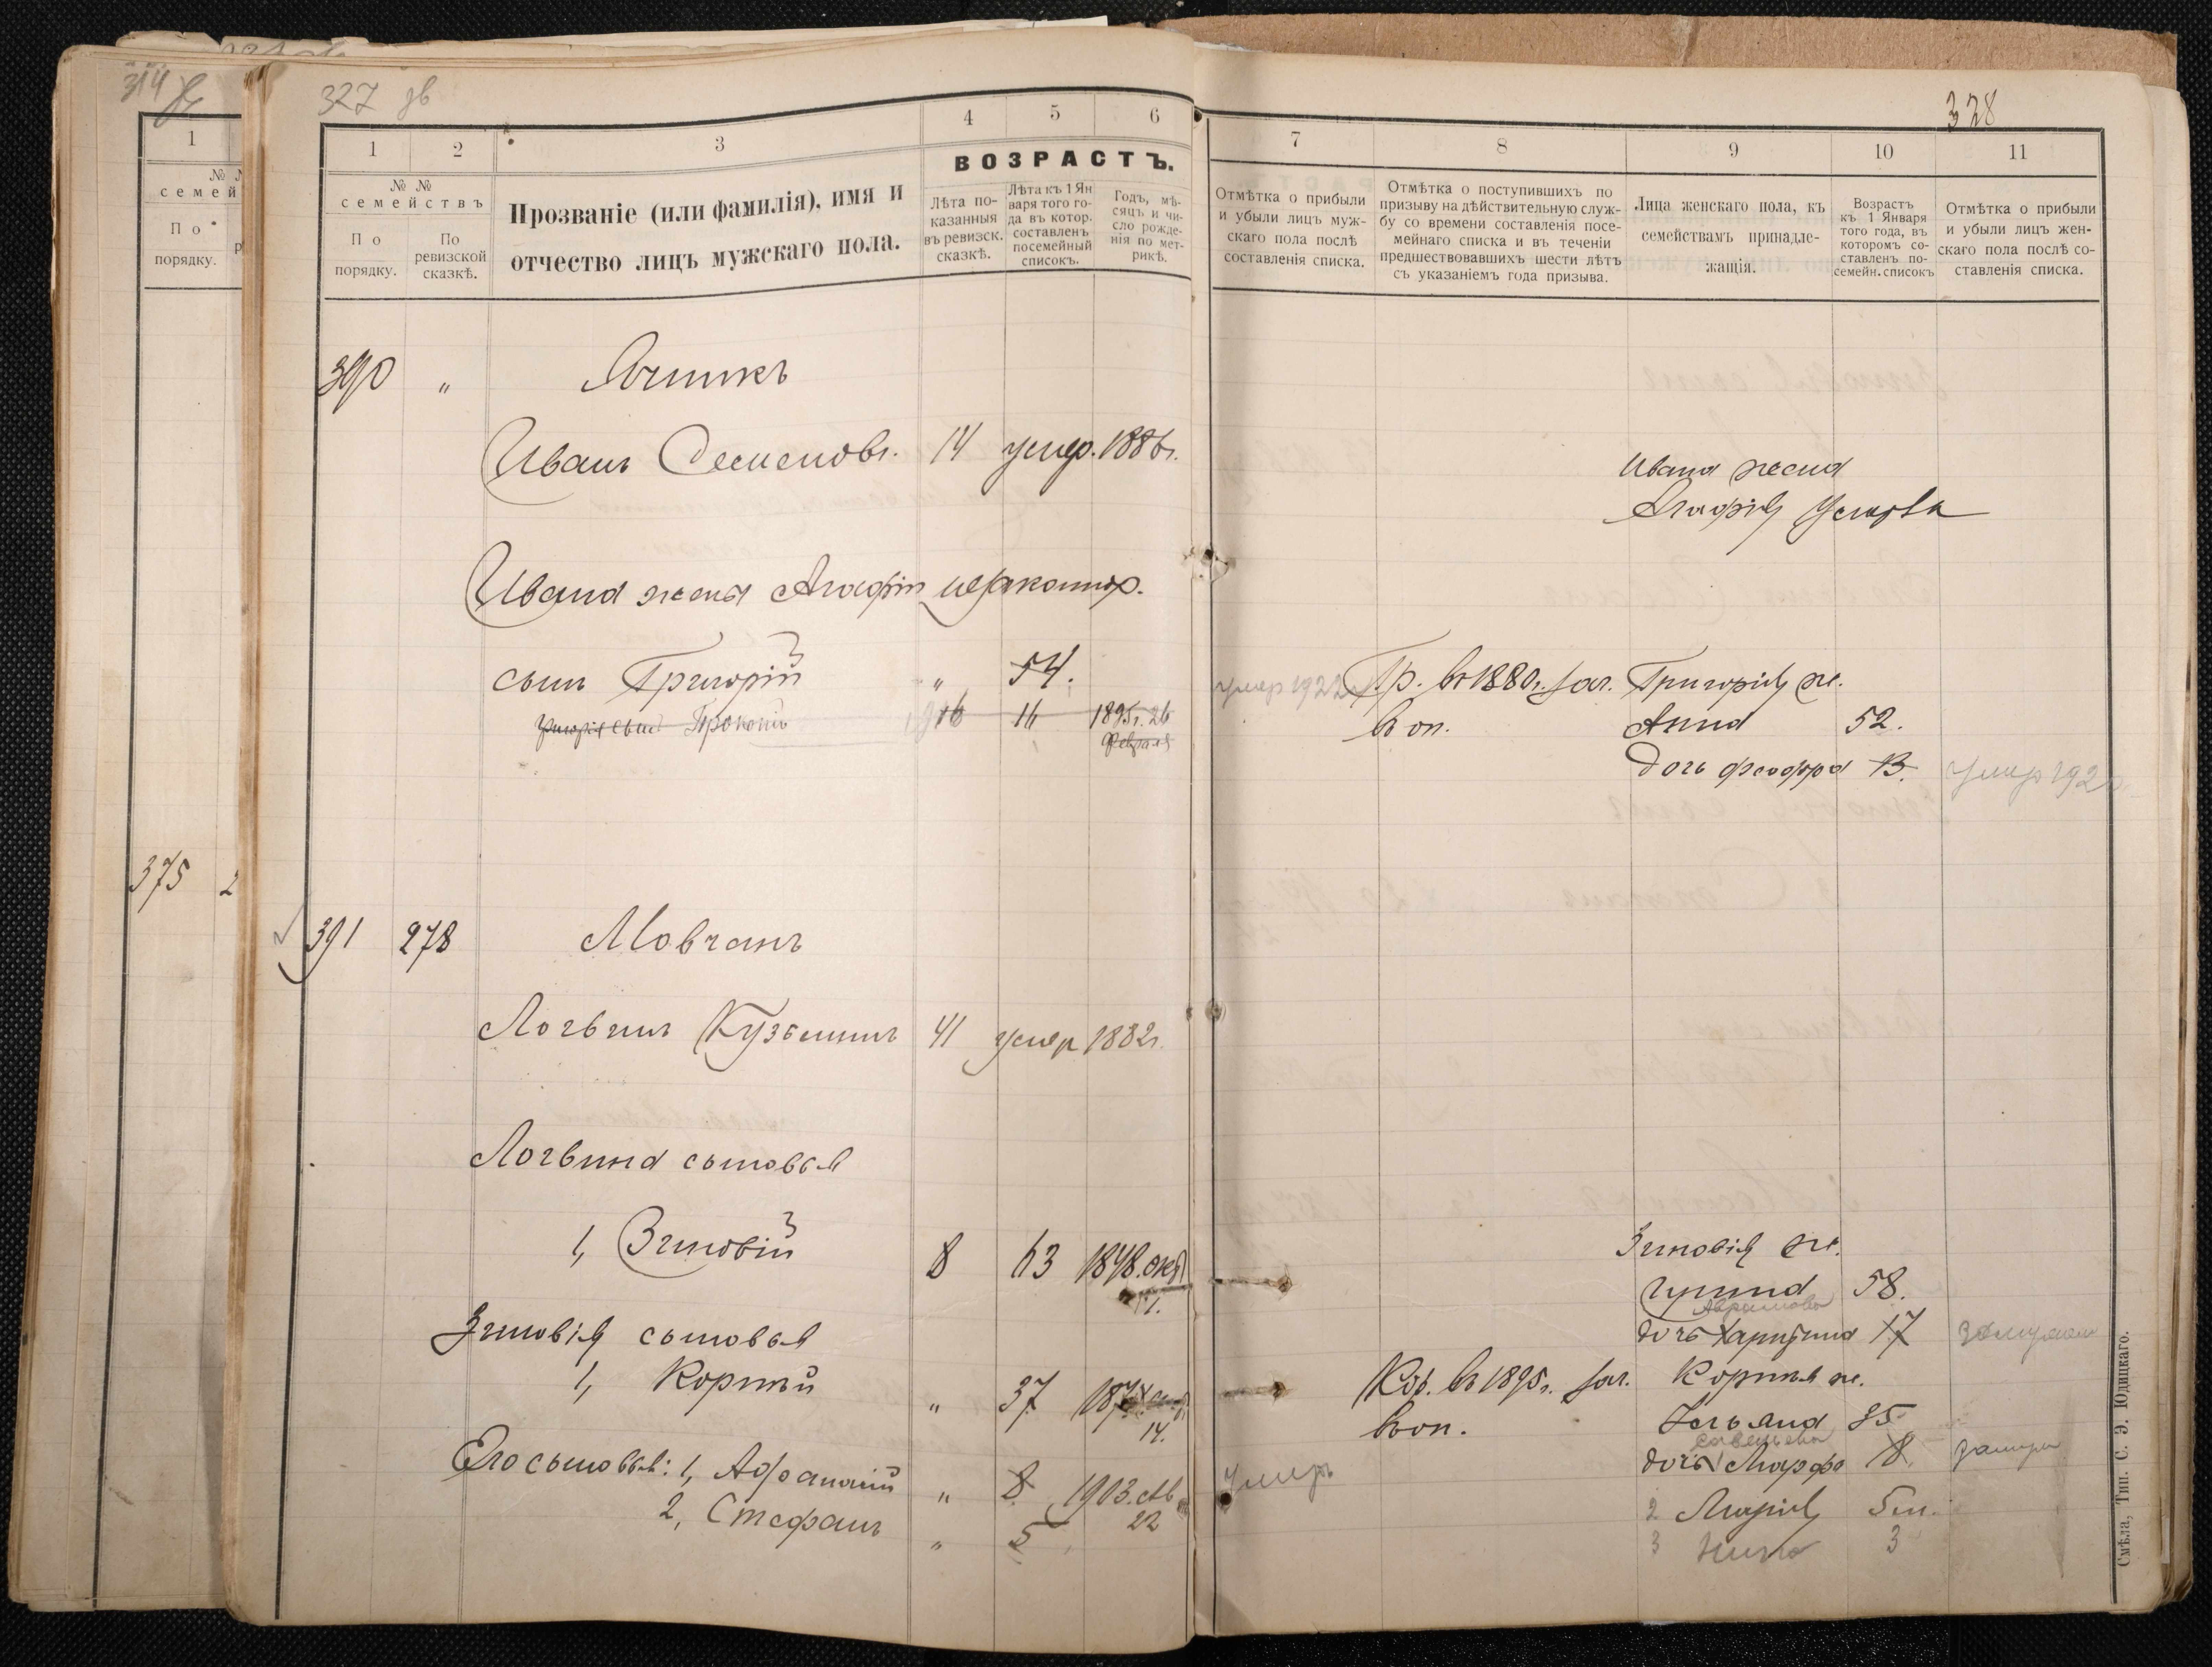 314
1
№
семей
По
порядку.
375 2
327 зв
1 2 3 4 5 6
№ №
семействъ
По
порядку.
По
ревизской
сказкѣ.
Прозваніе (или фамилія), имя и
отчество лицъ мужскаго пола.
ВОЗРАСТЪ.
Лѣта по-
казанныя
въ ревизск.
сказкѣ.
Лѣта къ 1 Ян
варя того го-
да въ котор.
составленъ
посемейный
списокъ.
Годъ, мѣ-
сяцъ и чи-
сло рожде-
нія по мет-
рикѣ.
390 "
Иванъ Семеновъ. 14 умер. 1886г.
Ивана жена Агафія
сынъ Григорій " 54.
Григорія сынъ Прокопій 16 1895г. 26
Февраля
391 278 Мовчанъ
Логвинъ Кузьминъ 41 умер 1882г.
Логвина сыновья
1, Зиновій 8 63 1848. окт
17.
Зиновія сыновья
1, Корнѣй " 37 187
14.
Его сыновья: 1, Афанасій " 8 1903. Ав
22
2, Стефанъ " 5
328
7 8 9 10 11
Отмѣтка о прибыли
и убыли лицъ муж-
скаго пола послѣ
составленія списка.
Отмѣтка о поступившихъ по
призыву на дѣйствительную служ-
бу со времени составленія посе-
мейнаго списка и въ теченіи
предшествовавшихъ шести лѣтъ
съ указаніемъ года призыва.
Лица женскаго пола, къ
семействамъ принадле-
жащія.
Возрастъ
къ 1 Января
того года, въ
которомъ со-
ставленъ по-
семейн. списокъ
Отмѣтка о прибыли
и убыли лицъ жен-
скаго пола послѣ со-
ставленія списка.
Ивана жена
Агафія Умерла
умер 1922 Гр. въ 1880г. зач. Григорія ж.
въ оп. Анна 52.
дочь Феодора 13. умер 192
Зиновія ж.
58.
дочь Харитина 17 замужем
Кор. въ 1895г. зач. Корнѣя ж.
въ оп. 35
Савельева
умеръ дочь Марфа 8
2 Марія 5 м.
3 Нина 3
Смѣла, Тип. С. Э. Юдицкаго.